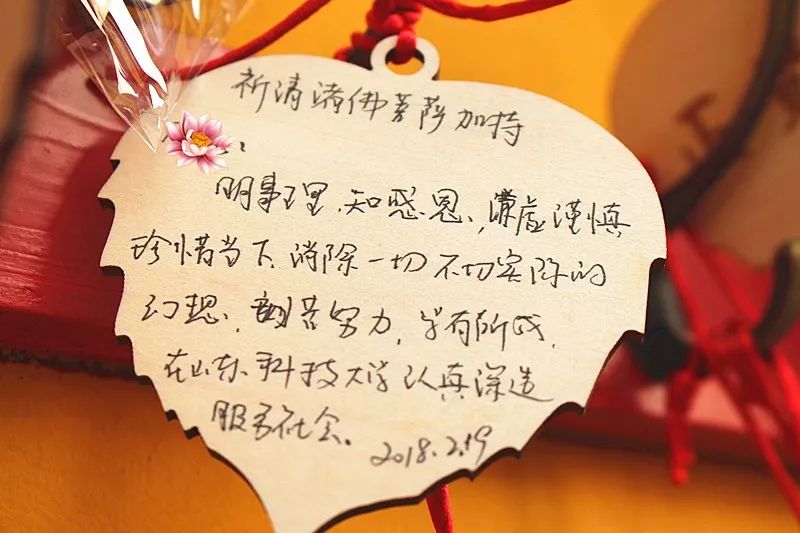 祈请诸佛菩萨加持
明事理、知感恩、谦虚谨慎
珍惜当下、消除一切不切实际的
幻想，刻苦努力，学有所成，
在山东科技大学认真深造
服务社会。2018.2.19